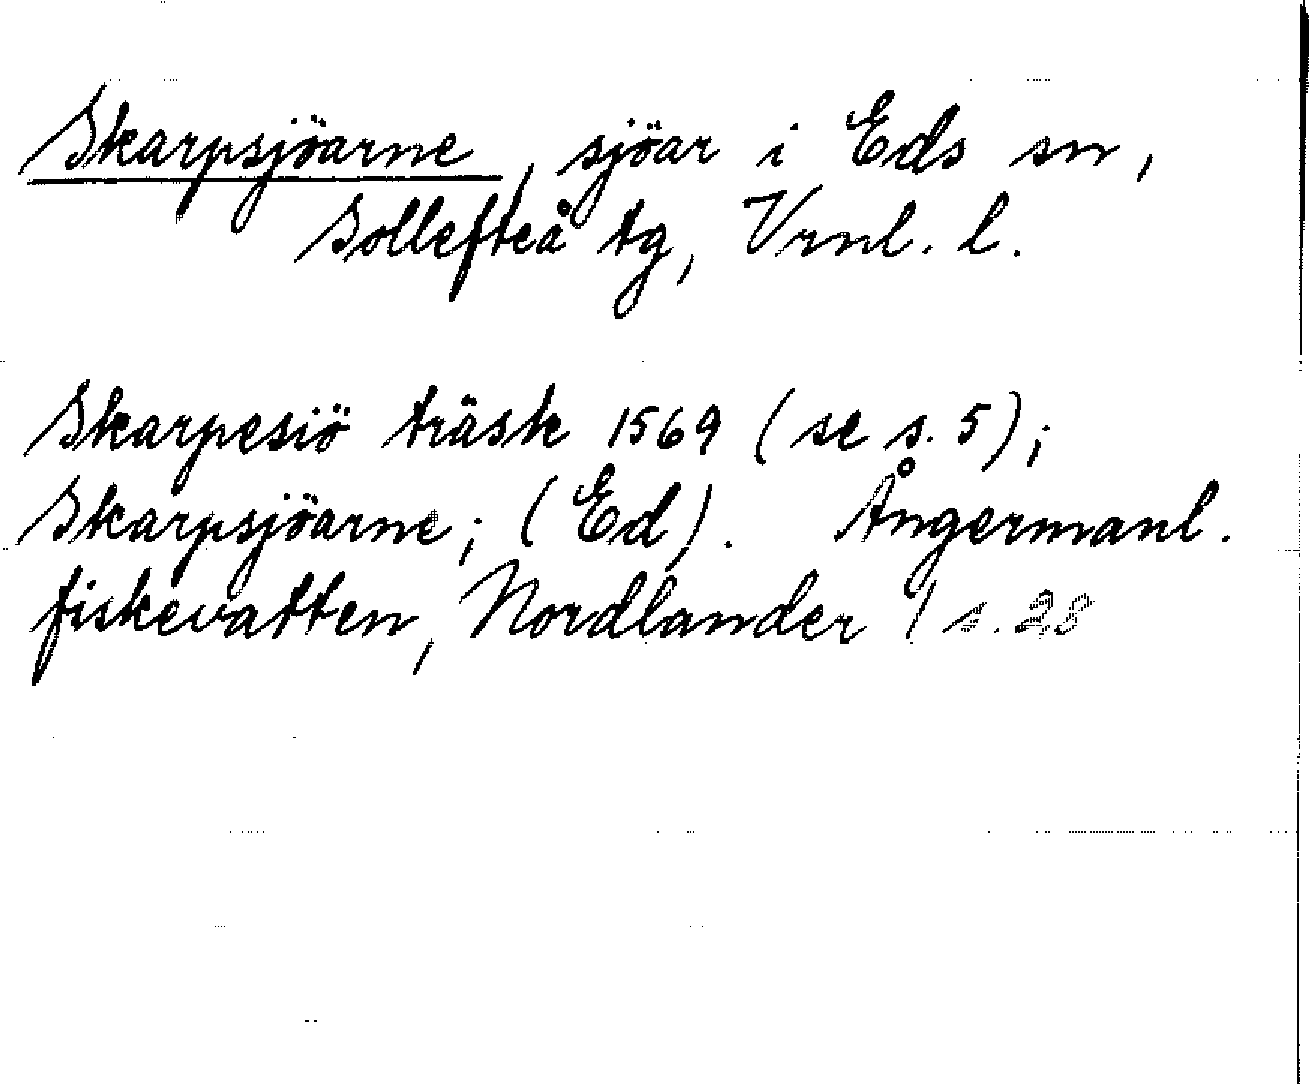 Skarpsjöarne, sjöar i Eds sn,
Sollefteå tg, Vrnl. l.
Skarpesiö träsk 1569 (se s. 5);
Skarpsjöarne; (Ed). Ångermanl.
fiskevatten, Nordlander / s. 28